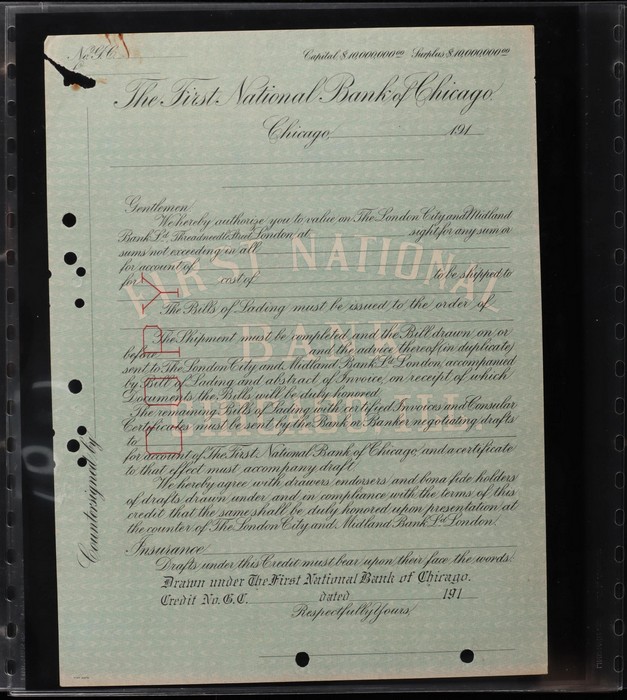 No. G.C. Capital $10,000,000.00 Surplus $10,000,000.00
The First National Bank of Chicago.
Chicago, 191
Gentlemen:
We hereby authorize you to value on The London City and Midland
Bank Ld. Threadneedle Street, London, at sight for any sum or
sums not exceeding in all
for account of
for cost of to be shipped to
The Bills of Lading must be issued to the order of
The Shipment must be completed and the Bill drawn on or
before and the advice thereof (in duplicate)
sent to The London City and Midland Bank Ld. London, accompanied
by Bill of Lading and abstract of Invoice, on receipt of which
Documents the Bills will be duly honored.
The remaining Bills of Lading with certified Invoices and Consular
Certificates must be sent by the Bank or Banker negotiating drafts
to
for account of The First National Bank of Chicago, and a certificate
to that effect must accompany draft.
We hereby agree with drawers, endorsers and bona fide holders
of drafts drawn under and in compliance with the terms of this
credit that the same shall be duly honored upon presentation at
the counter of The London City and Midland Bank Ld. London.
Insurance
Drafts under this Credit must bear upon their face the words:
Drawn under The First National Bank of Chicago.
Credit No. G.C. dated 191
Respectfully Yours,
Countersigned by
COPY
FIRST NATIONAL
BANK